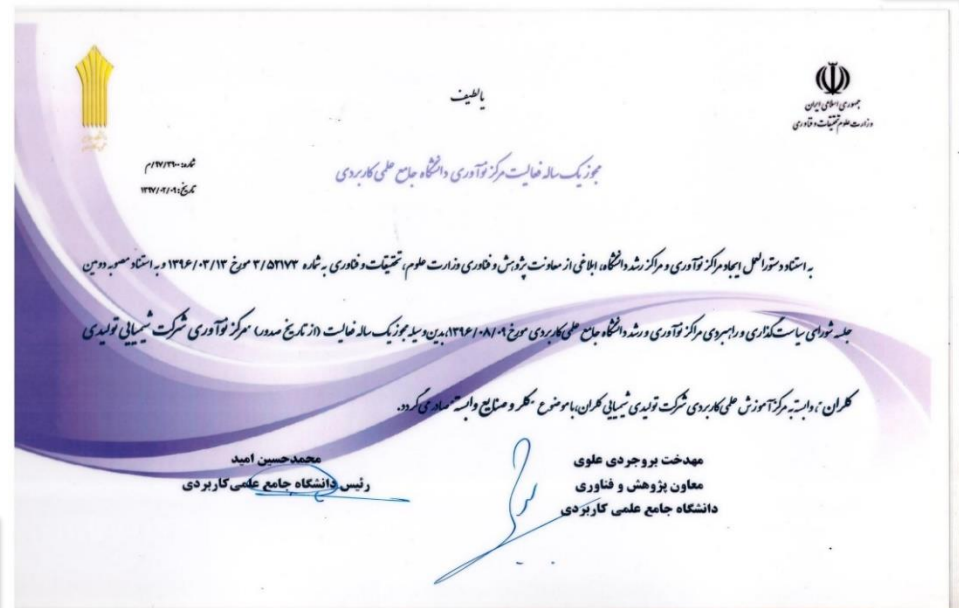 یا لطیف
جمهوری اسلامی ایران
وزارت علوم تحقیقات و فناوری
شماره: ۹۷/۳۹۰۰/م
تاریخ: ۱۳۹۷/۰۲/۰۹
مجوز یک ساله فعالیت مرکز نوآوری دانشگاه جامع علمی کاربردی
به استناد دستورالعمل ایجاد مراکز نوآوری و مراکز رشد دانشگاه، ابلاغی از معاونت پژوهش و فناوری وزارت علوم، تحقیقات و فناوری به شماره ۳/۵۲۱۷۳ مورخ ۱۳۹۶/۰۳/۱۳ و به استناد مصوبه دومین
جلسه شورای سیاست گذاری و راهبردی مراکز نوآوری و رشد دانشگاه جامع علمی کاربردی مورخ ۱۳۹۶/۰۸/۰۹، بدین وسیله مجوز یک ساله فعالیت (از تاریخ صدور) "مرکز نوآوری شرکت شیمیایی تولیدی
کلران"، وابسته به مرکز آموزش علمی کاربردی شرکت تولیدی شیمیایی کلران، با موضوع "کلر و صنایع وابسته" صادر می گردد.
مهدخت بروجردی علوی
معاون پژوهش و فناوری
دانشگاه جامع علمی کاربردی
محمدحسین امید
رئیس دانشگاه جامع علمی کاربردی